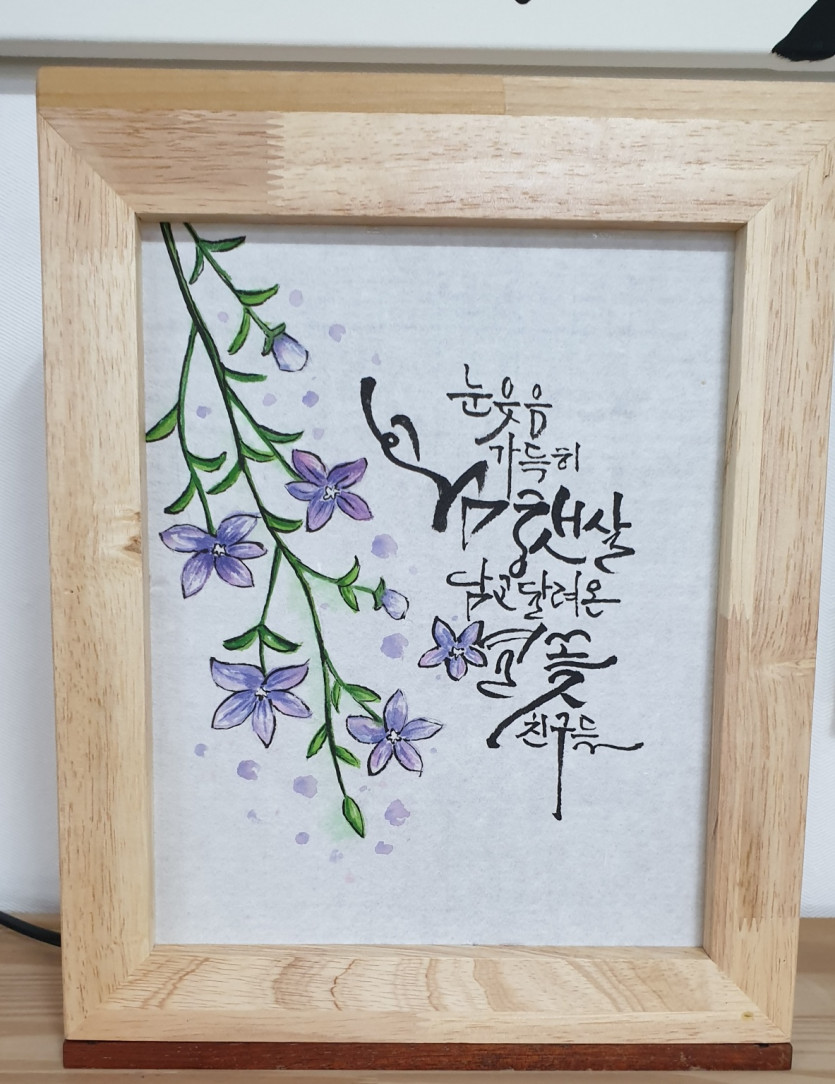 눈웃음
가득히
봄햇살
담고 달려온
꽃
친구들